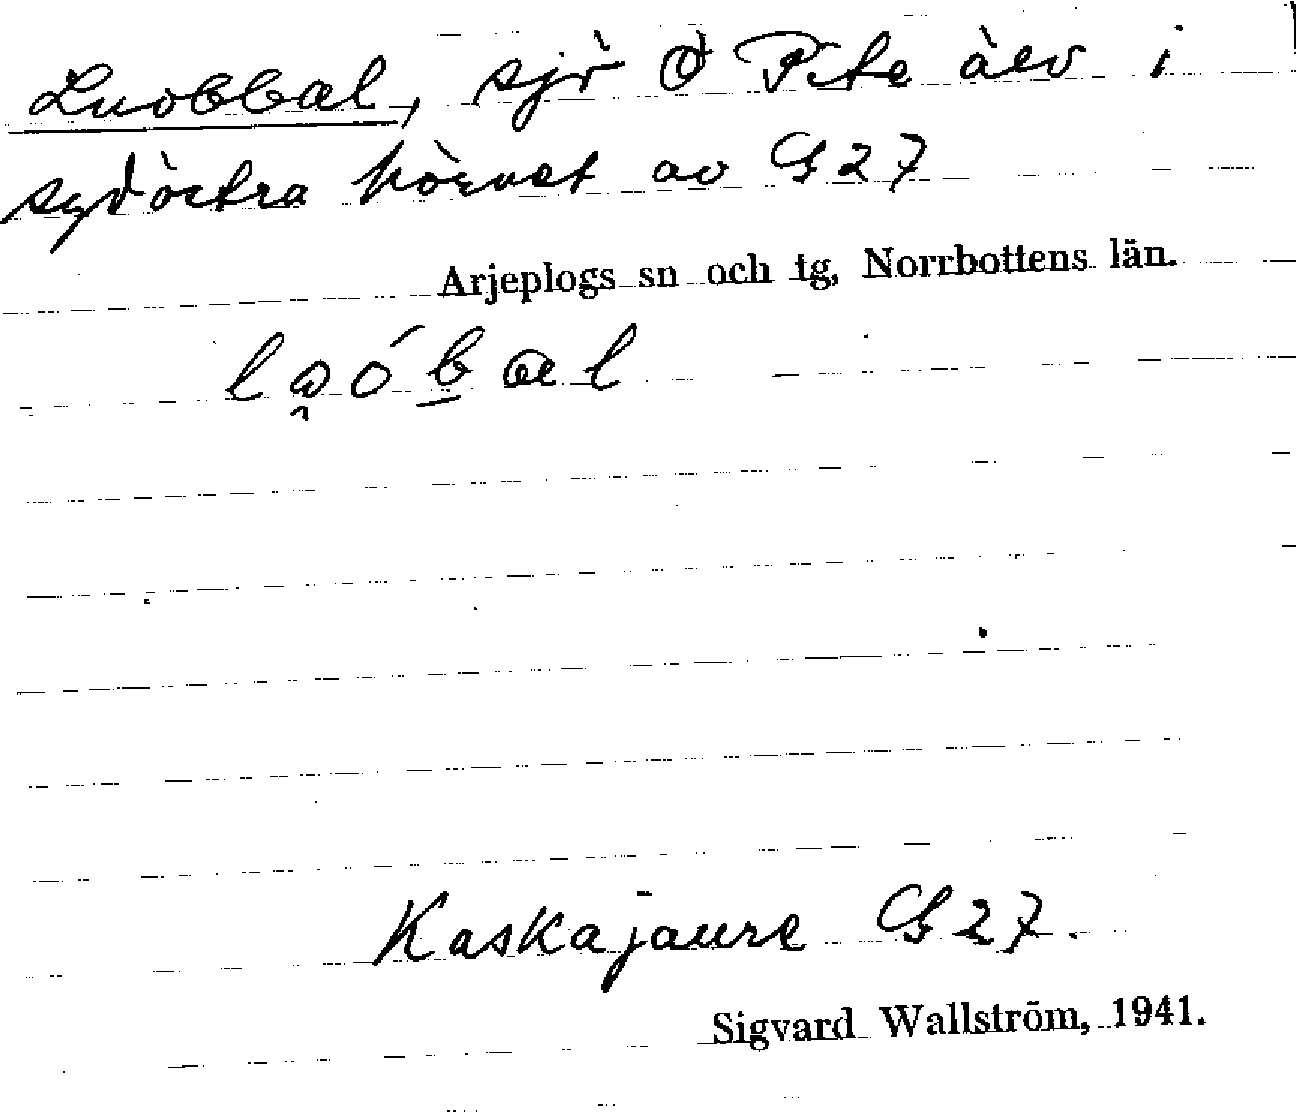 Luobbal, sjö Ö Pite älv i
sydöstra hörnet av G27
Arjeplogs sn och tg, Norrbottens län.
Kaskajaure G27.
Sigvard Wallström, 1941.